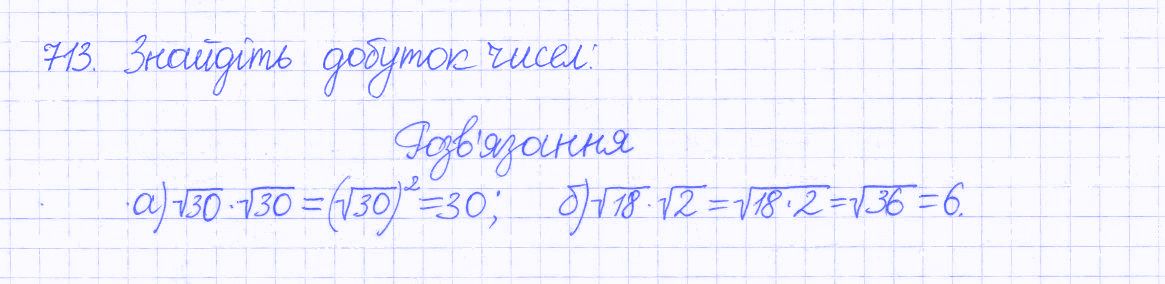 713. Знайдіть добуток чисел:
Розв'язання
а) √30 · √30 = (√30)² = 30; б) √18 · √2 = √18 · 2 = √36 = 6.